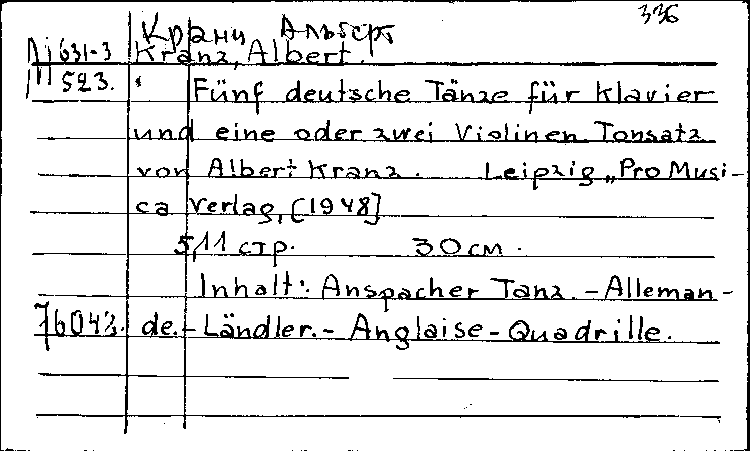 336
Кранц Альберт
631-3 Kranz, Albert.
523. Fünf deutsche Tänze für Klavier
und eine oder zwei Violinen Tonsatz
von Albert Kranz. Leipzig „Pro Musi-
ca Verlag, [1948]
5,11 стр. 30 см.
Inhalt: Anspacher Tanz. - Alleman-
de. - Ländler. - Anglaise - Quadrille.